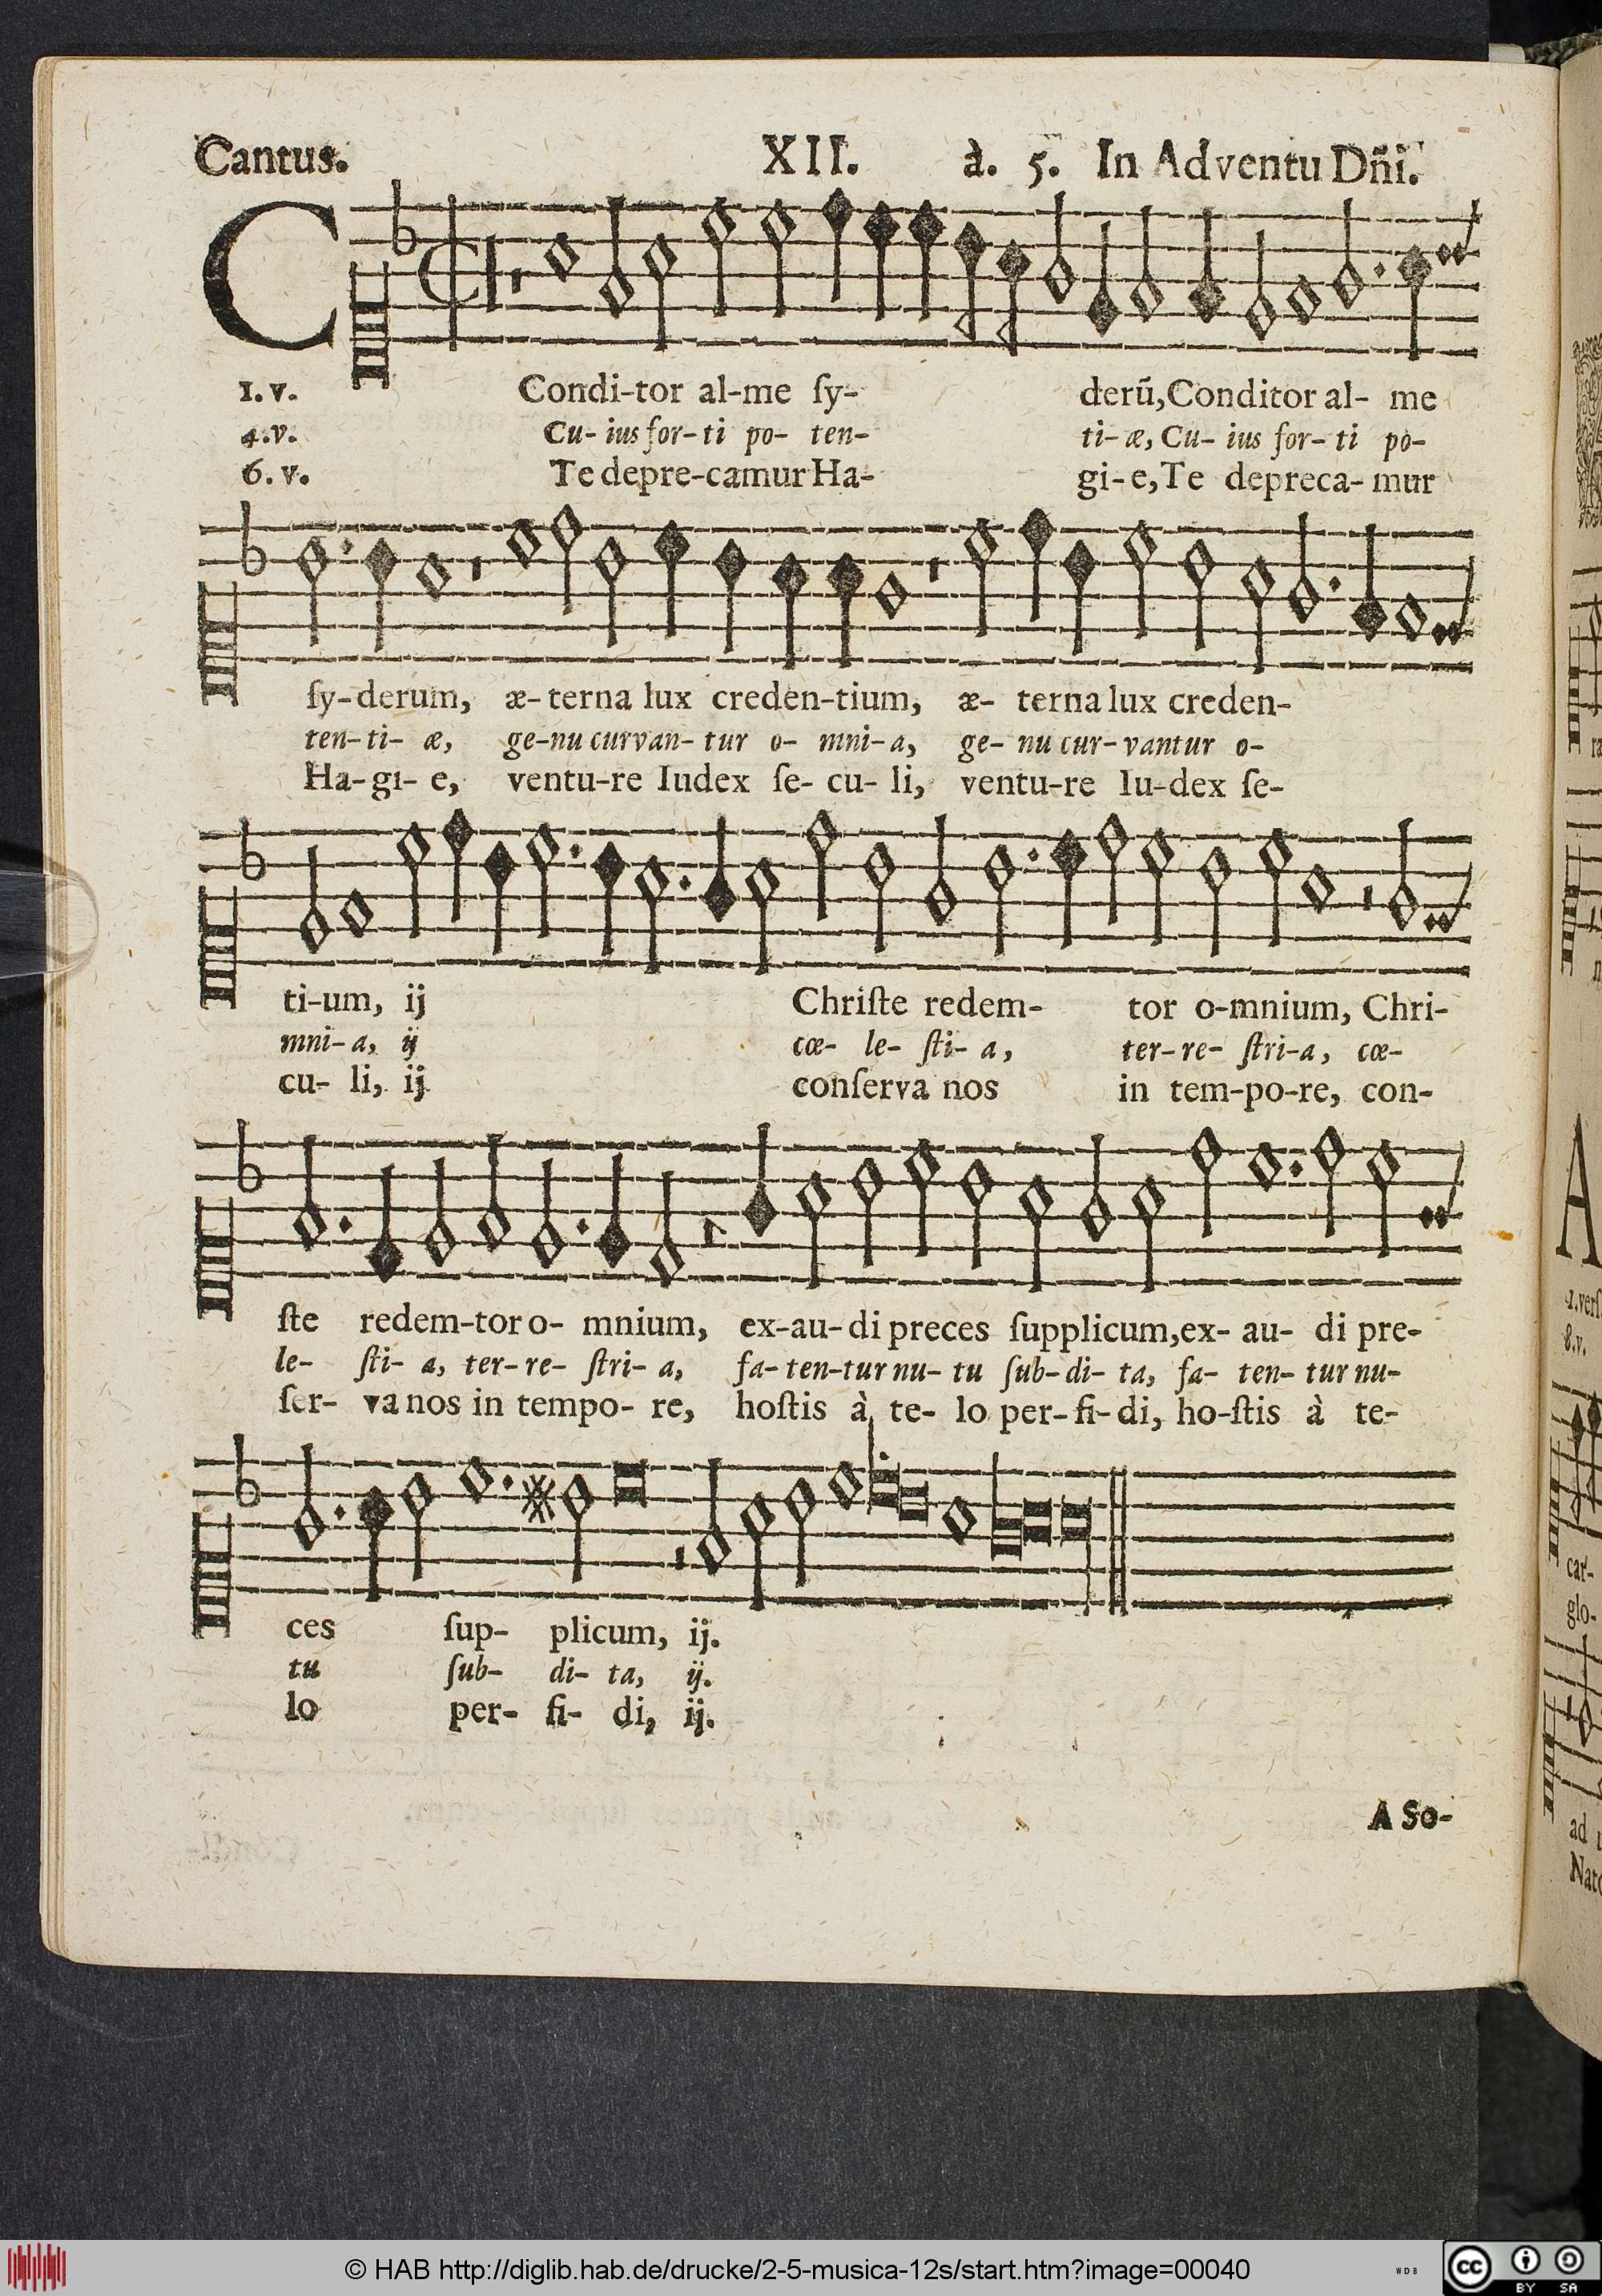 Cantus. XII. à. 5. In Adventu Dn̄i.
C
1. v. Condi-tor al-me ſy- derū, Conditor al- me
4. v. Cu- ius for- ti po- ten- ti- æ, Cu- ius for- ti po-
6. v. Te depre-camur Ha- gi- e, Te depreca- mur
ſy-derum, æ- terna lux creden-tium, æ- terna lux creden-
ten- ti- æ, ge-nu curvan- tur o- mni- a, ge- nu cur- vantur o-
Ha- gi- e, ventu-re Iudex ſe- cu- li, ventu-re Iu-dex ſe-
ti-um, ij Chriſte redem- tor o-mnium, Chri-
mni- a, ij cœ- le- ſti- a, ter- re- ſtri-a, cœ-
cu- li, ij conſerva nos in tem-po-re, con-
ſte redem-tor o- mnium, ex-au- di preces ſupplicum, ex- au- di pre-
le- ſti- a, ter- re- ſtri- a, fa- ten-tur nu- tu ſub- di- ta, fa- ten- tur nu-
ſer- va nos in tempo- re, hoſtis à te- lo per- fi- di, ho-ſtis à te-
ces ſup- plicum, ij.
tu ſub- di- ta, ij.
lo per- fi- di, ij.
A So-
A
8.v.
car-
glo-
ad
© HAB http://diglib.hab.de/drucke/2-5-musica-12s/start.htm?image=00040
WDB
cc BY SA